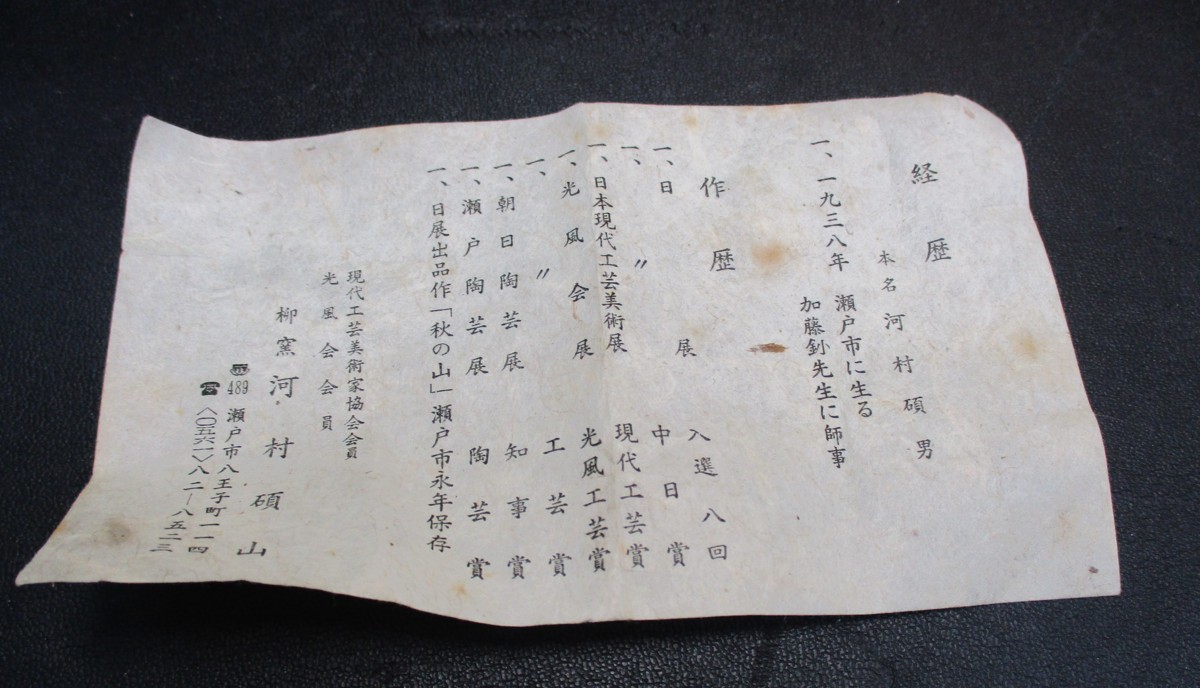 経歴
本名 河村碩男
一、一九三八年 瀬戸市に生る
加藤釥先生に師事
作歴
一、日展 入選八回
一、〃 中日賞
一、日本現代工芸美術展 現代工芸賞
一、光風会展 光風工芸賞
一、〃 工芸賞
一、朝日陶芸展 知事賞
一、瀬戸陶芸展 陶芸賞
一、日展出品作「秋の山」瀬戸市永年保存
現代工芸美術家協会会員
光風会会員
柳窯 河村碩山
〠489 瀬戸市八王子町一一四
☎〈〇五六一〉八二―八五二三